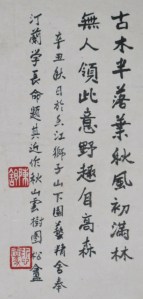 古木半落葉秋風初滿林
無人領此意野趣自高森
辛丑秋日於魚江獅子山下園藝精舍奉
汀蘭学長命題其近作秋山雲樹圖 松盦